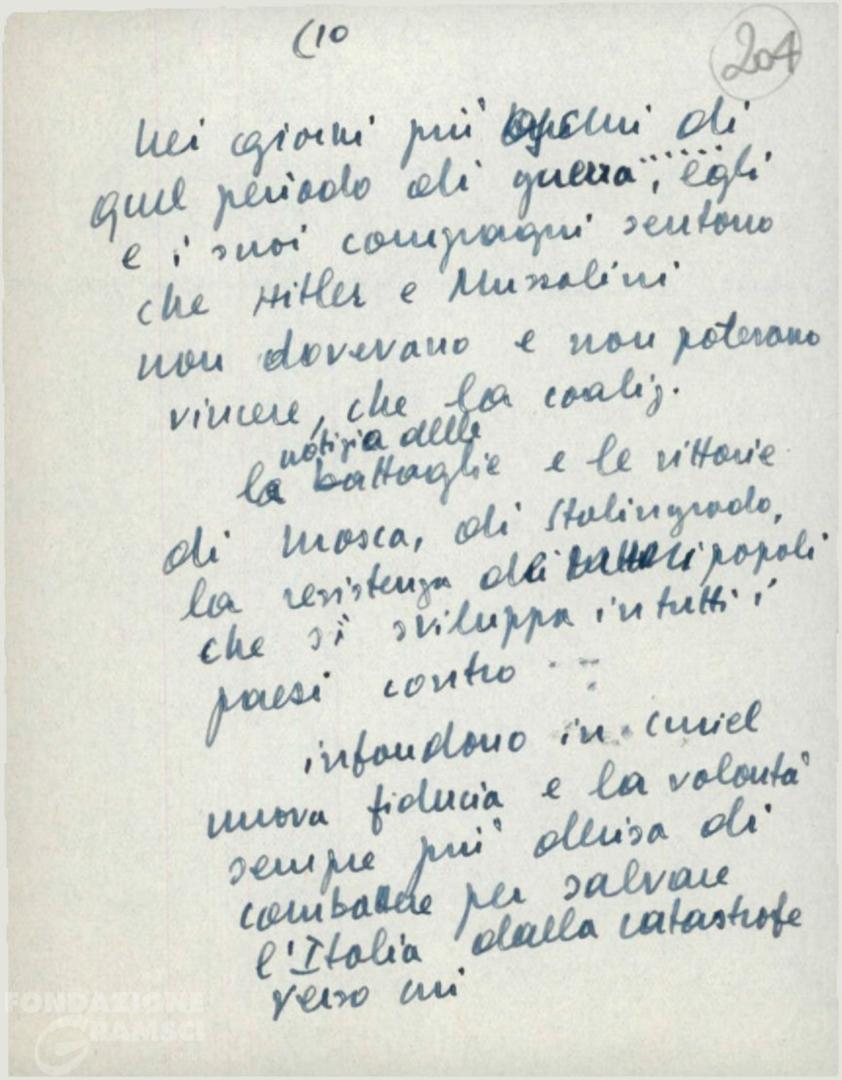 (10
204
Nei giorni più di
quel periodo di guerra, ...... egli
e i suoi compagni sentono
che Hitler e Mussolini
non dovevano e non potevano
vincere, che la coaliz.
notizia delle
la battaglie e le vittorie
di Mosca, di Stalingrado,
la resistenza dei popoli
che si sviluppa in tutti i
paesi contro ...
infondono in Curiel
nuova fiducia e la volontà
sempre più decisa di
combattere per salvare
l'Italia dalla catastrofe
verso cui
FONDAZIONE
GRAMSCI